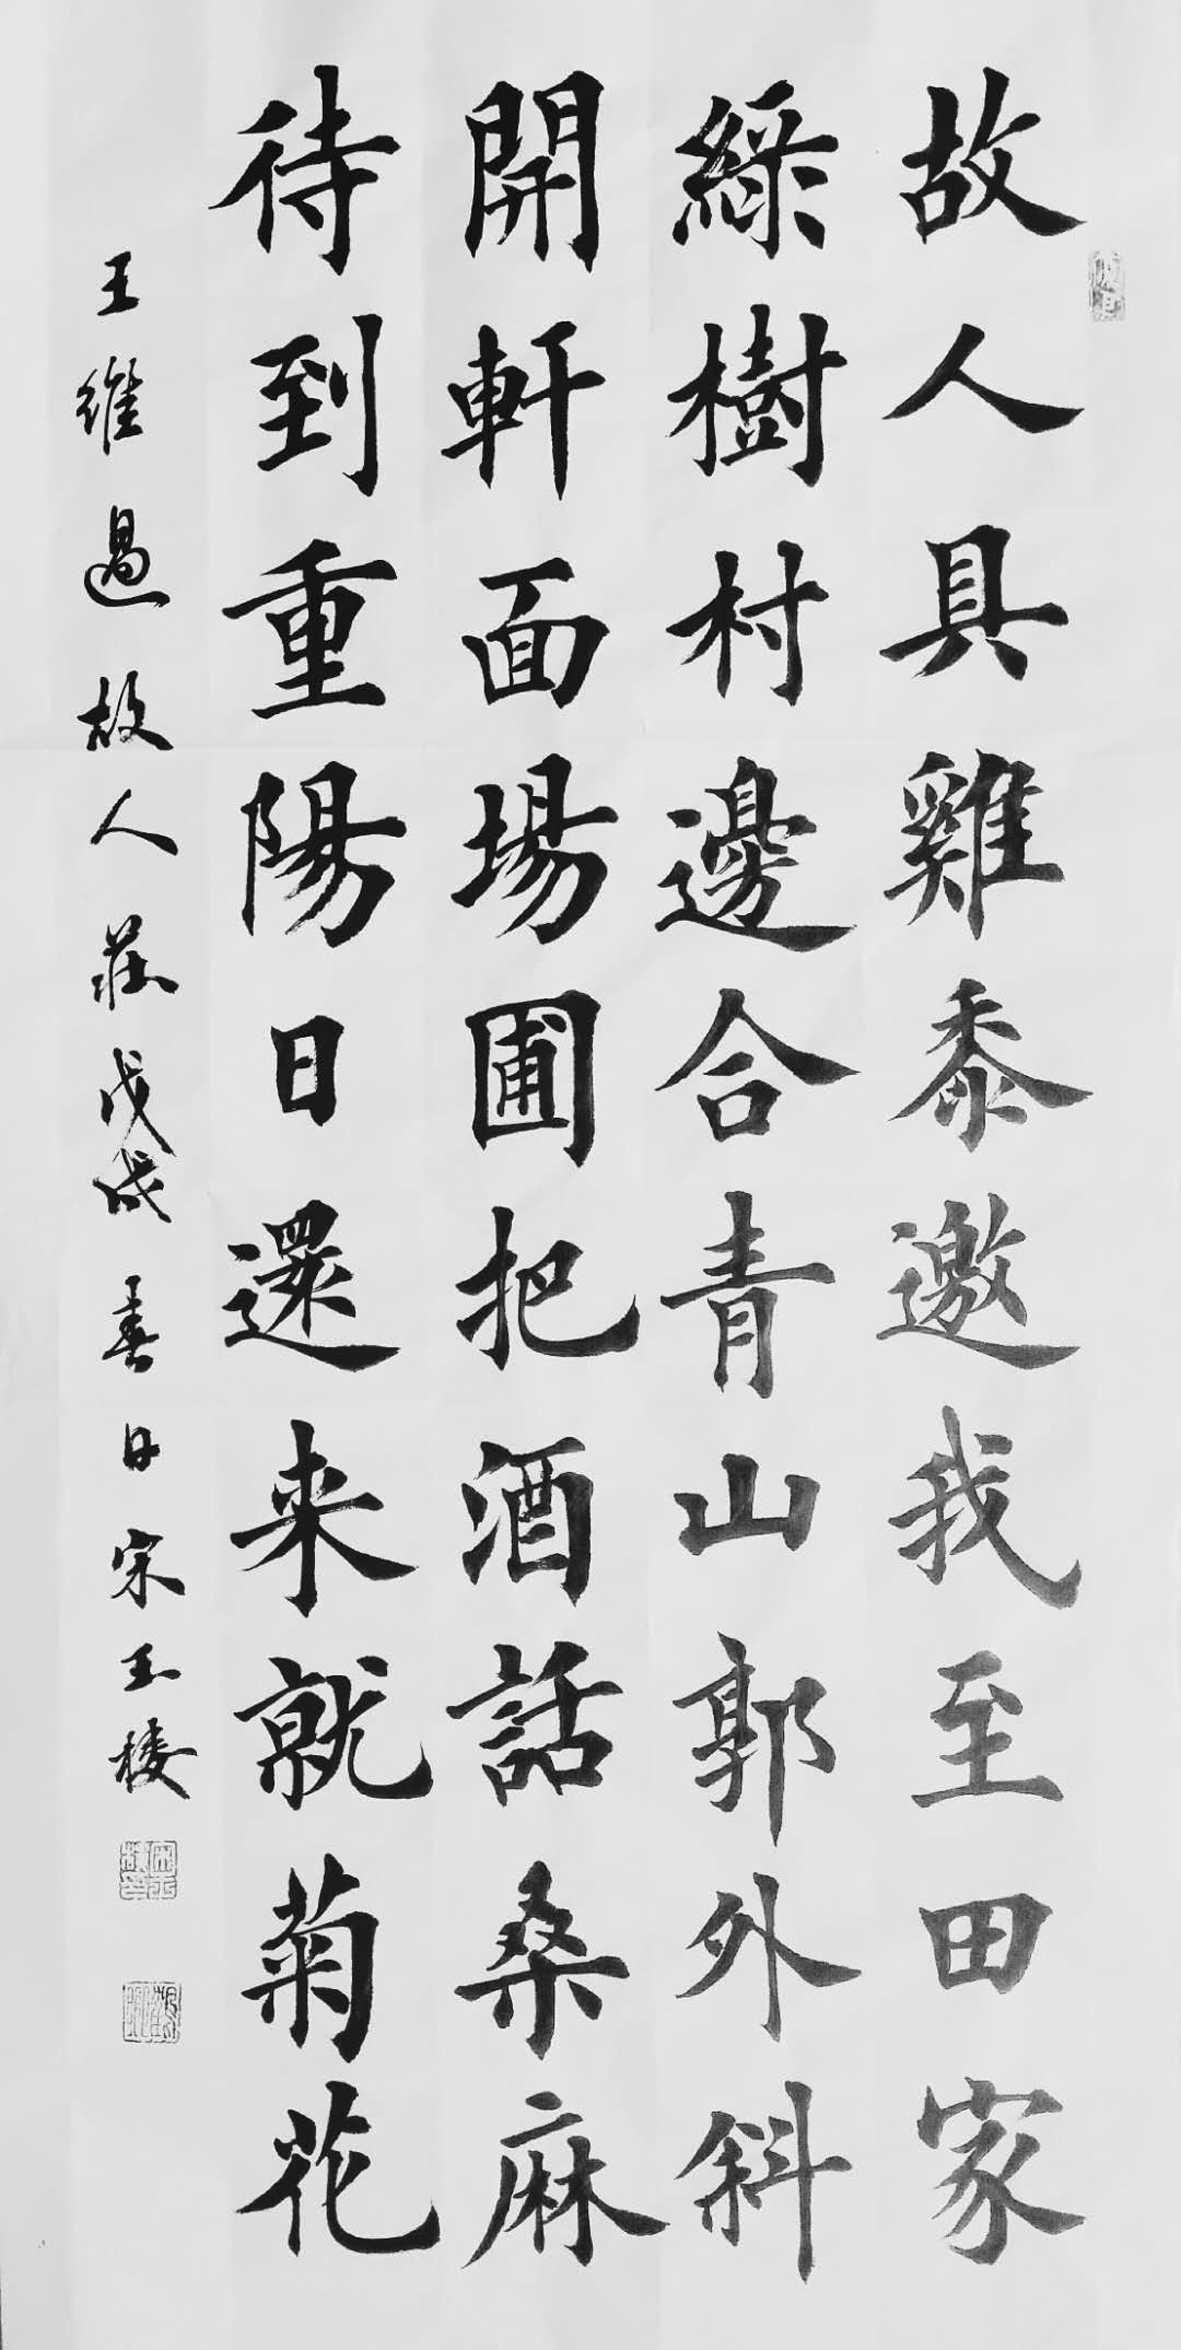 故人具雞黍邀我至田家
綠樹村邊合青山郭外斜
開軒面場圃把酒話桑麻
待到重陽日還来就菊花
王維過故人莊戊戌春日宋玉棱